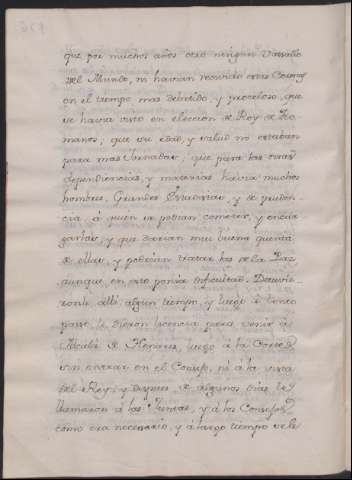 que por muchos años otro ningun Vasallo
del Mundo, ni havian reconido otras Coronas
en el tiempo mas debatido, y proceloso, que
se havia visto en eleccion de Rey de Ro-
manos; que su edad, y salud no estaban
para mas Jornadas; que para las otras
dependiencias, y materias havia muchos
hombres, Grandes Estadistas, y de pruden-
cia, á quien se podian cometer, y encar-
garlas, y que darian mui buena quenta
de ellas, y podrian tratar los de la Paz,
aunque en esto ponia dificultad. Detuvie-
ronle allí algun tiempo, y luego á
paso, le dieron licencia para venir á
Alcalá de Henares, luego á la Corte
sin entrar en el Consejo, ni á la vista
del Rey; y despues de algunos dias le
llamaron á las Juntas, y á los Consejos
como era necesario, y á largo tiempo se le